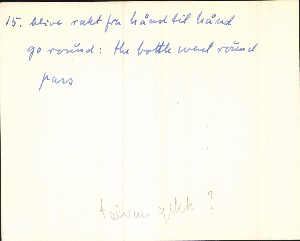 15. blive rakt fra hånd til hånd
go round: the bottle went round
pass
gikk ?